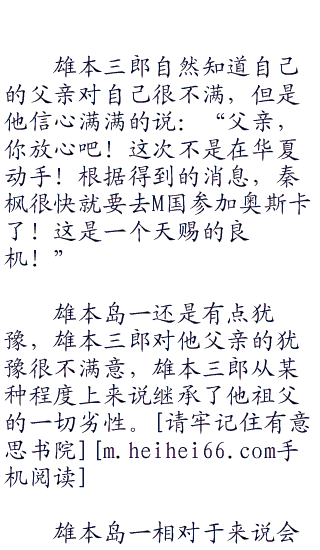 雄本三郎自然知道自己
的父亲对自己很不满，但是
他信心满满的说：“父亲，
你放心吧！这次不是在华夏
动手！根据得到的消息，秦
枫很快就要去M国参加奥斯卡
了！这是一个天赐的良
机！”
雄本岛一还是有点犹
豫，雄本三郎对他父亲的犹
豫很不满意，雄本三郎从某
种程度上来说继承了他祖父
的一切劣性。[请牢记住有意
思书院][m.heihei66.com手
机阅读]
雄本岛一相对于来说会